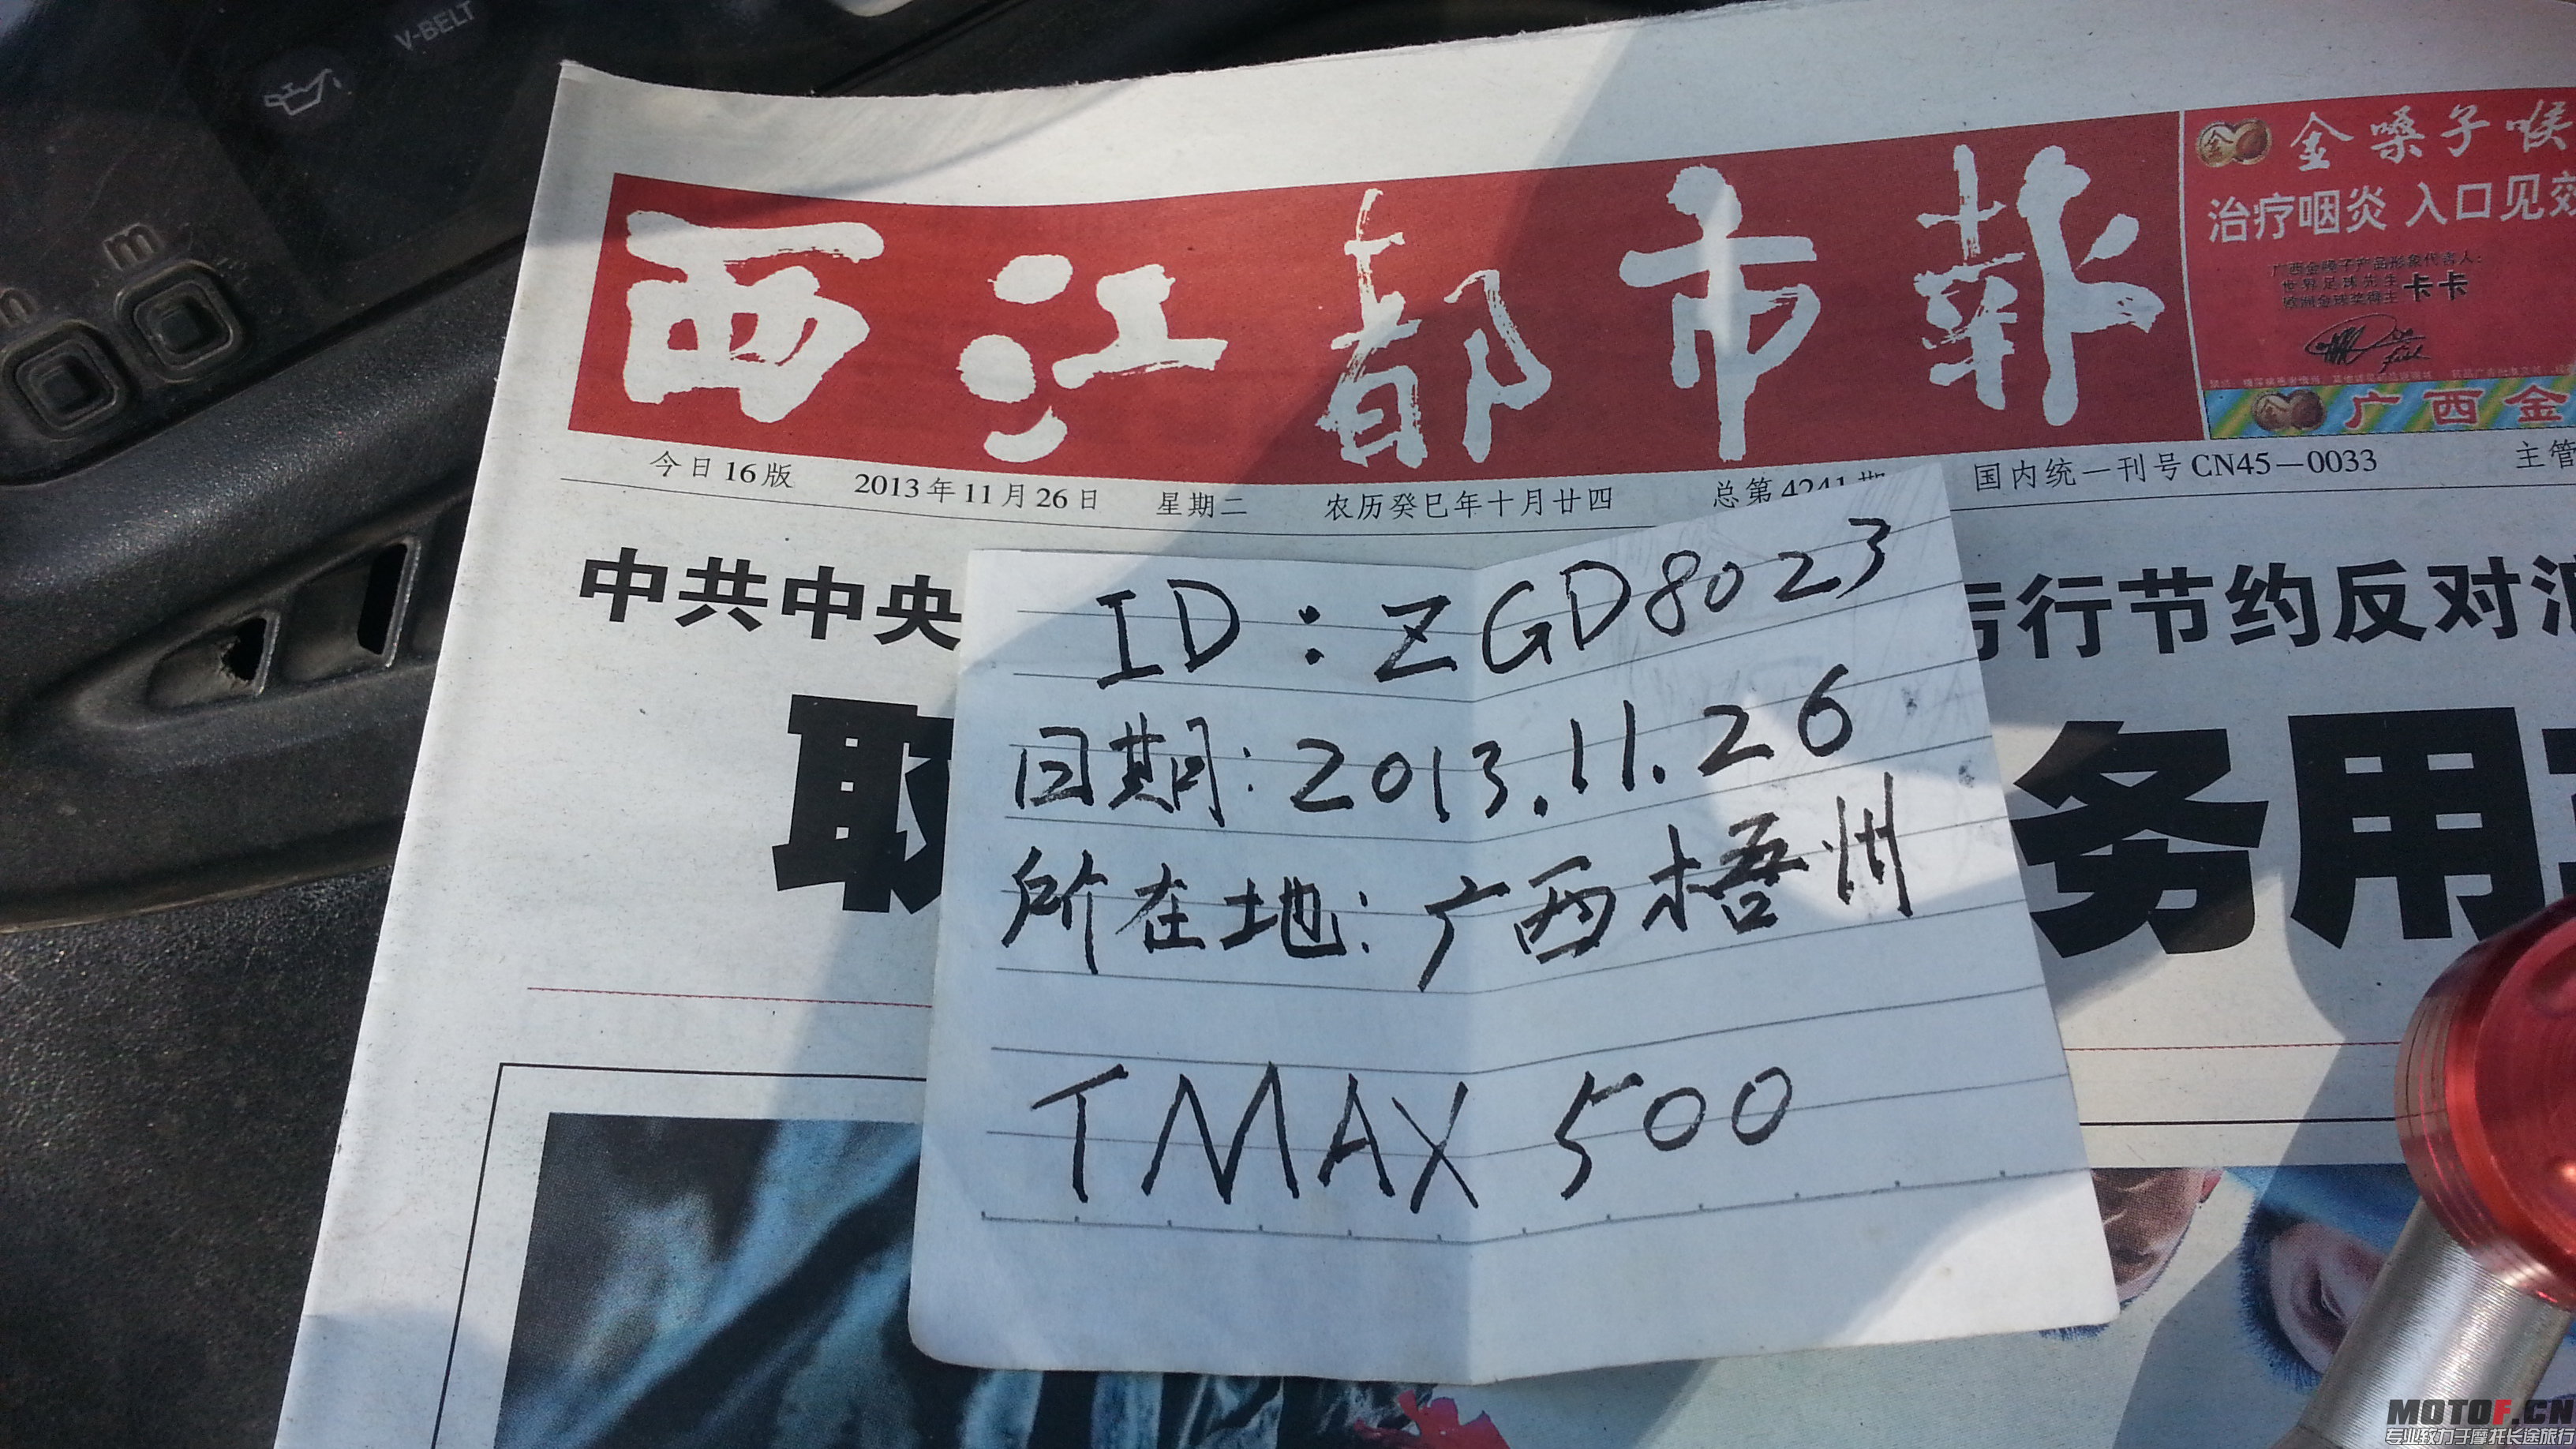 V-BELT
m
西江都市報
金嗓子喉
治疗咽炎 入口见效
广西金嗓子产品形象代言人:
世界足球先生
欧洲金球奖得主 卡卡
广西金
今日16版 2013年11月26日 星期二 农历癸巳年十月廿四 总第4241期 国内统一刊号CN45-0033 主管
中共中央
行节约反对浪
取
务用
ID:ZGD8023
日期:2013.11.26
所在地:广西梧州
TMAX 500
MOTOF.CN
专业致力于摩托长途旅行